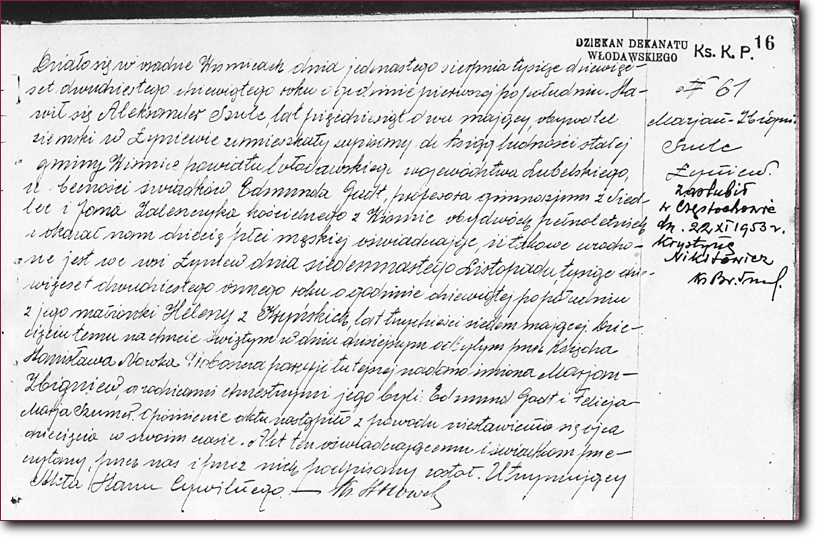 DZIEKAN DEKANATU
WŁODAWSKIEGO
Ks. K. P. 16
Działo się w osadzie Wisznicach dnia jedenastego sierpnia tysiąc dziewięć-
set dwudziestego dziewiątego roku o godzinie pierwszej po południu. Sta-
wił się Aleksander Szulc lat pięćdziesiąt dwa mający, obywatel
ziemski w Żyniewie zamieszkały wpisany do ksiąg ludności stałej
gminy Wisznice powiatu Włodawskiego województwa Lubelskiego,
w obecności świadków Edmunda Godt, profesora gimnazjum z Siedl-
lec i Jana kościelnego z Wisznic obydwóch pełnoletnich
i okazał nam dziecię płci męskiej oświadczając, iż takowe urodzo-
ne jest we wsi Żyniew dnia siedemnastego Listopada, tysiąc dzi-
więćset dwudziestego ósmego roku o godzinie dziewiątej po południu
z jego małżonki Heleny z lat trzydzieści siedem mającej. Dzie-
cięciu temu na chrzcie świętym w dniu dzisiejszym odbytym przez Księdza
Stanisława Nowka Proboszcza parafji tutejszej nadano imiona Marjan-
Zbigniew, a rodzicami chrzestnymi jego byli: Edmund Godt i Felicja-
Marja Opóźnienie aktu nastąpiło z powodu niestawienia się ojca
dziecięcia w swoim czasie. Akt ten oświadczającemu i świadkom prze-
czytany, przez nas i przez nich podpisany został. Utrzymujący
Akta Stanu Cywilnego. — Ks.
№ 61
Marjan-Zbigniew
Szulc
Żyniew.
zaślubił
w Częstochowie
dn. 22 XI 1953 r.
Krystynę
Nikitowicz
Ks Br.